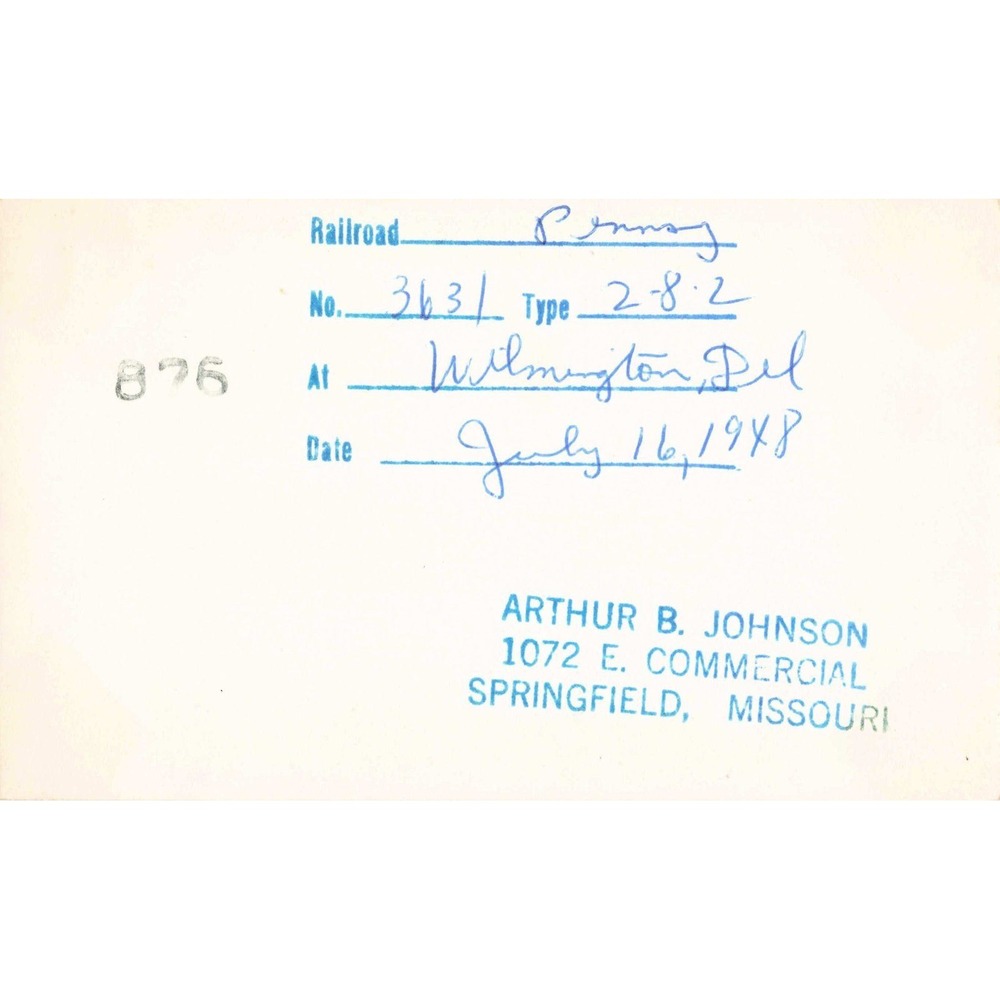 Railroad Pennsy
No. 3631 Type 2-8-2
876
At Wilmington, Del
Date July 16, 1948
ARTHUR B. JOHNSON
1072 E. COMMERCIAL
SPRINGFIELD, MISSOURI